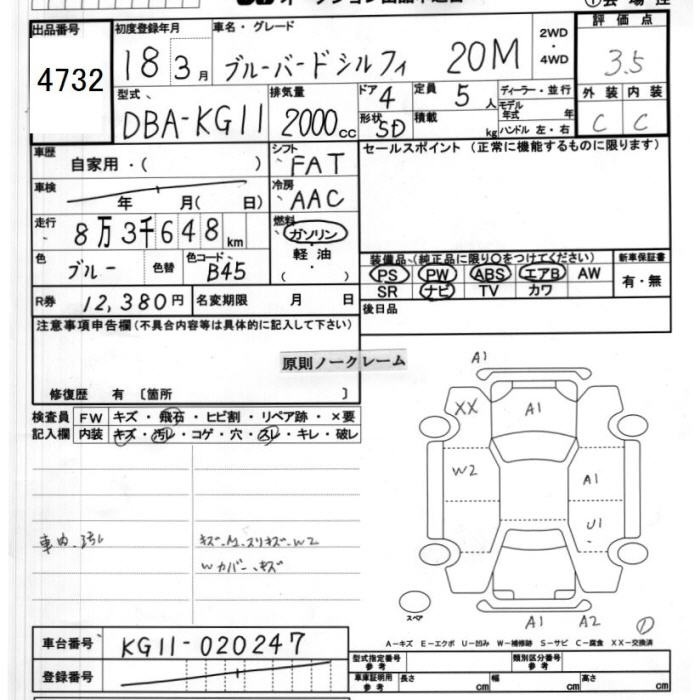 出品番号 初度登録年月 車名・グレード 評価点
4732
18 3月 ブルーバードシルフィ 20M 2WD・4WD 3.5
型式 排気量 ドア 4 定員 5人 ディーラー・並行 外装 内装
DBA-KG11 2000cc 形状 SD 積載 kg モデル年式 年 ハンドル 左・右 C C
車歴 自家用・( ) シフト FAT セールスポイント(正常に機能するものに限ります)
車検 年 月( 日) 冷房 AAC
走行 8万3千648km 燃料 ガソリン・軽油・( )
色 ブルー 色替 色コード B45 装備品(純正品に限り○をつけてください) 新車保証書
PS PW ABS エアB AW 有・無
SR ナビ TV カワ
R券 12,380円 名変期限 月 日 後日品
注意事項申告欄(不具合内容等は具体的に記入して下さい)
原則ノークレーム
修復歴 有 〔箇所 〕
検査員記入欄 FW キズ・飛石・ヒビ割・リペア跡・×要
内装 キズ・汚レ・コゲ・穴・スレ・キレ・破レ
A1
XX A1
W2 A1
U1
車内汚れ キズ.A.スリキズ.W2
Wカバー、キズ
スペア A1 A2 ①
A-キズ E-エクボ U-凹み W-補修跡 S-サビ C-腐食 XX-交換済
車台番号 KG11-020247
型式指定番号 参考 類別区分番号 参考
登録番号 車庫証明用 参考 長さ cm 幅 cm 高さ cm